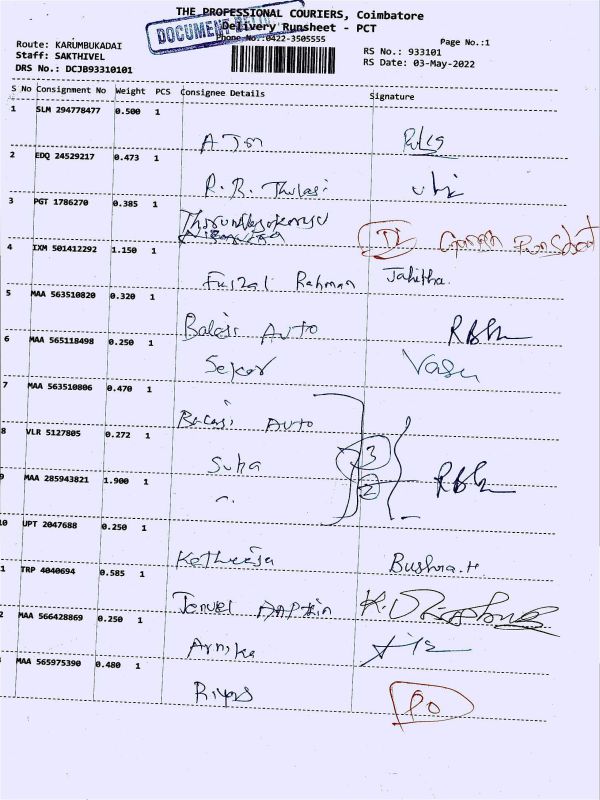 THE PROFESSIONAL COURIERS, Coimbatore
Delivery Runsheet - PCT
Phone No.:0422-3505555
DOCUMENT
Route: KARUMBUKADAI
Staff: SAKTHIVEL
DRS No.: DCJB93310101
Page No.:1
RS No.: 933101
RS Date: 03-May-2022
S No Consignment No Weight PCS Consignee Details Signature
1 SLM 294778477 0.500 1
2 EDQ 24529217 0.473 1
R. R. Thulasi
3 PGT 1786270 0.385 1
4 IXM 501412292 1.150 1
Faizal Rahman Jahitha.
5 MAA 563510820 0.320 1
Balaji Auto
6 MAA 565118498 0.250 1
Sekar Vasu
7 MAA 563510806 0.470 1
Balaji Auto
8 VLR 5127805 0.272 1
Suha 3
9 MAA 285943821 1.900 1
2
10 UPT 2047688 0.250 1
Bushra.H
1 TRP 4040694 0.585 1
2 MAA 566428869 0.250 1
MAA 565975390 0.480 1
Riyas